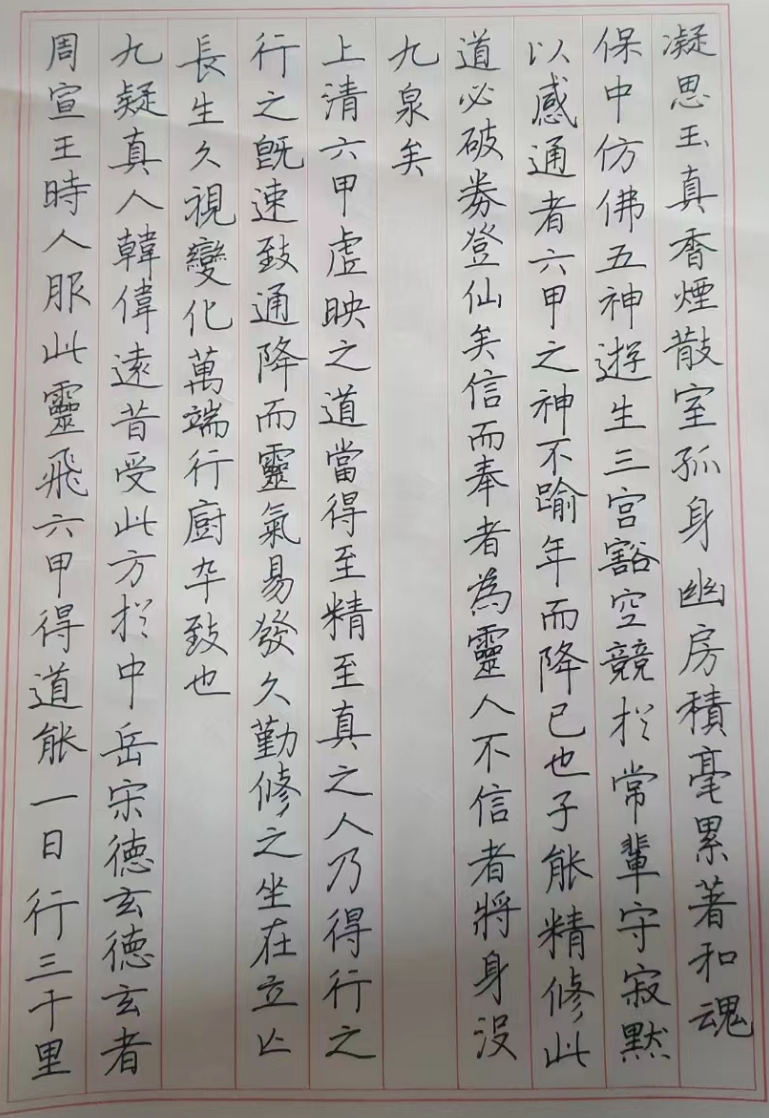 凝思玉真香煙散室孤身幽房積毫累著和魂
保中仿佛五神遊生三宫豁空競於常輩守寂默
以感通者六甲之神不踰年而降已也子能精修此
道必破券登仙矣信而奉者為靈人不信者將身没
九泉矣
上清六甲虚映之道當得至精至真之人乃得行之
行之既速致通降而靈氣易發久勤修之坐在立亡
長生久視變化萬端行廚卒致也
九疑真人韓偉遠昔受此方於中岳宋德玄德玄者
周宣王時人服此靈飛六甲得道能一日行三千里